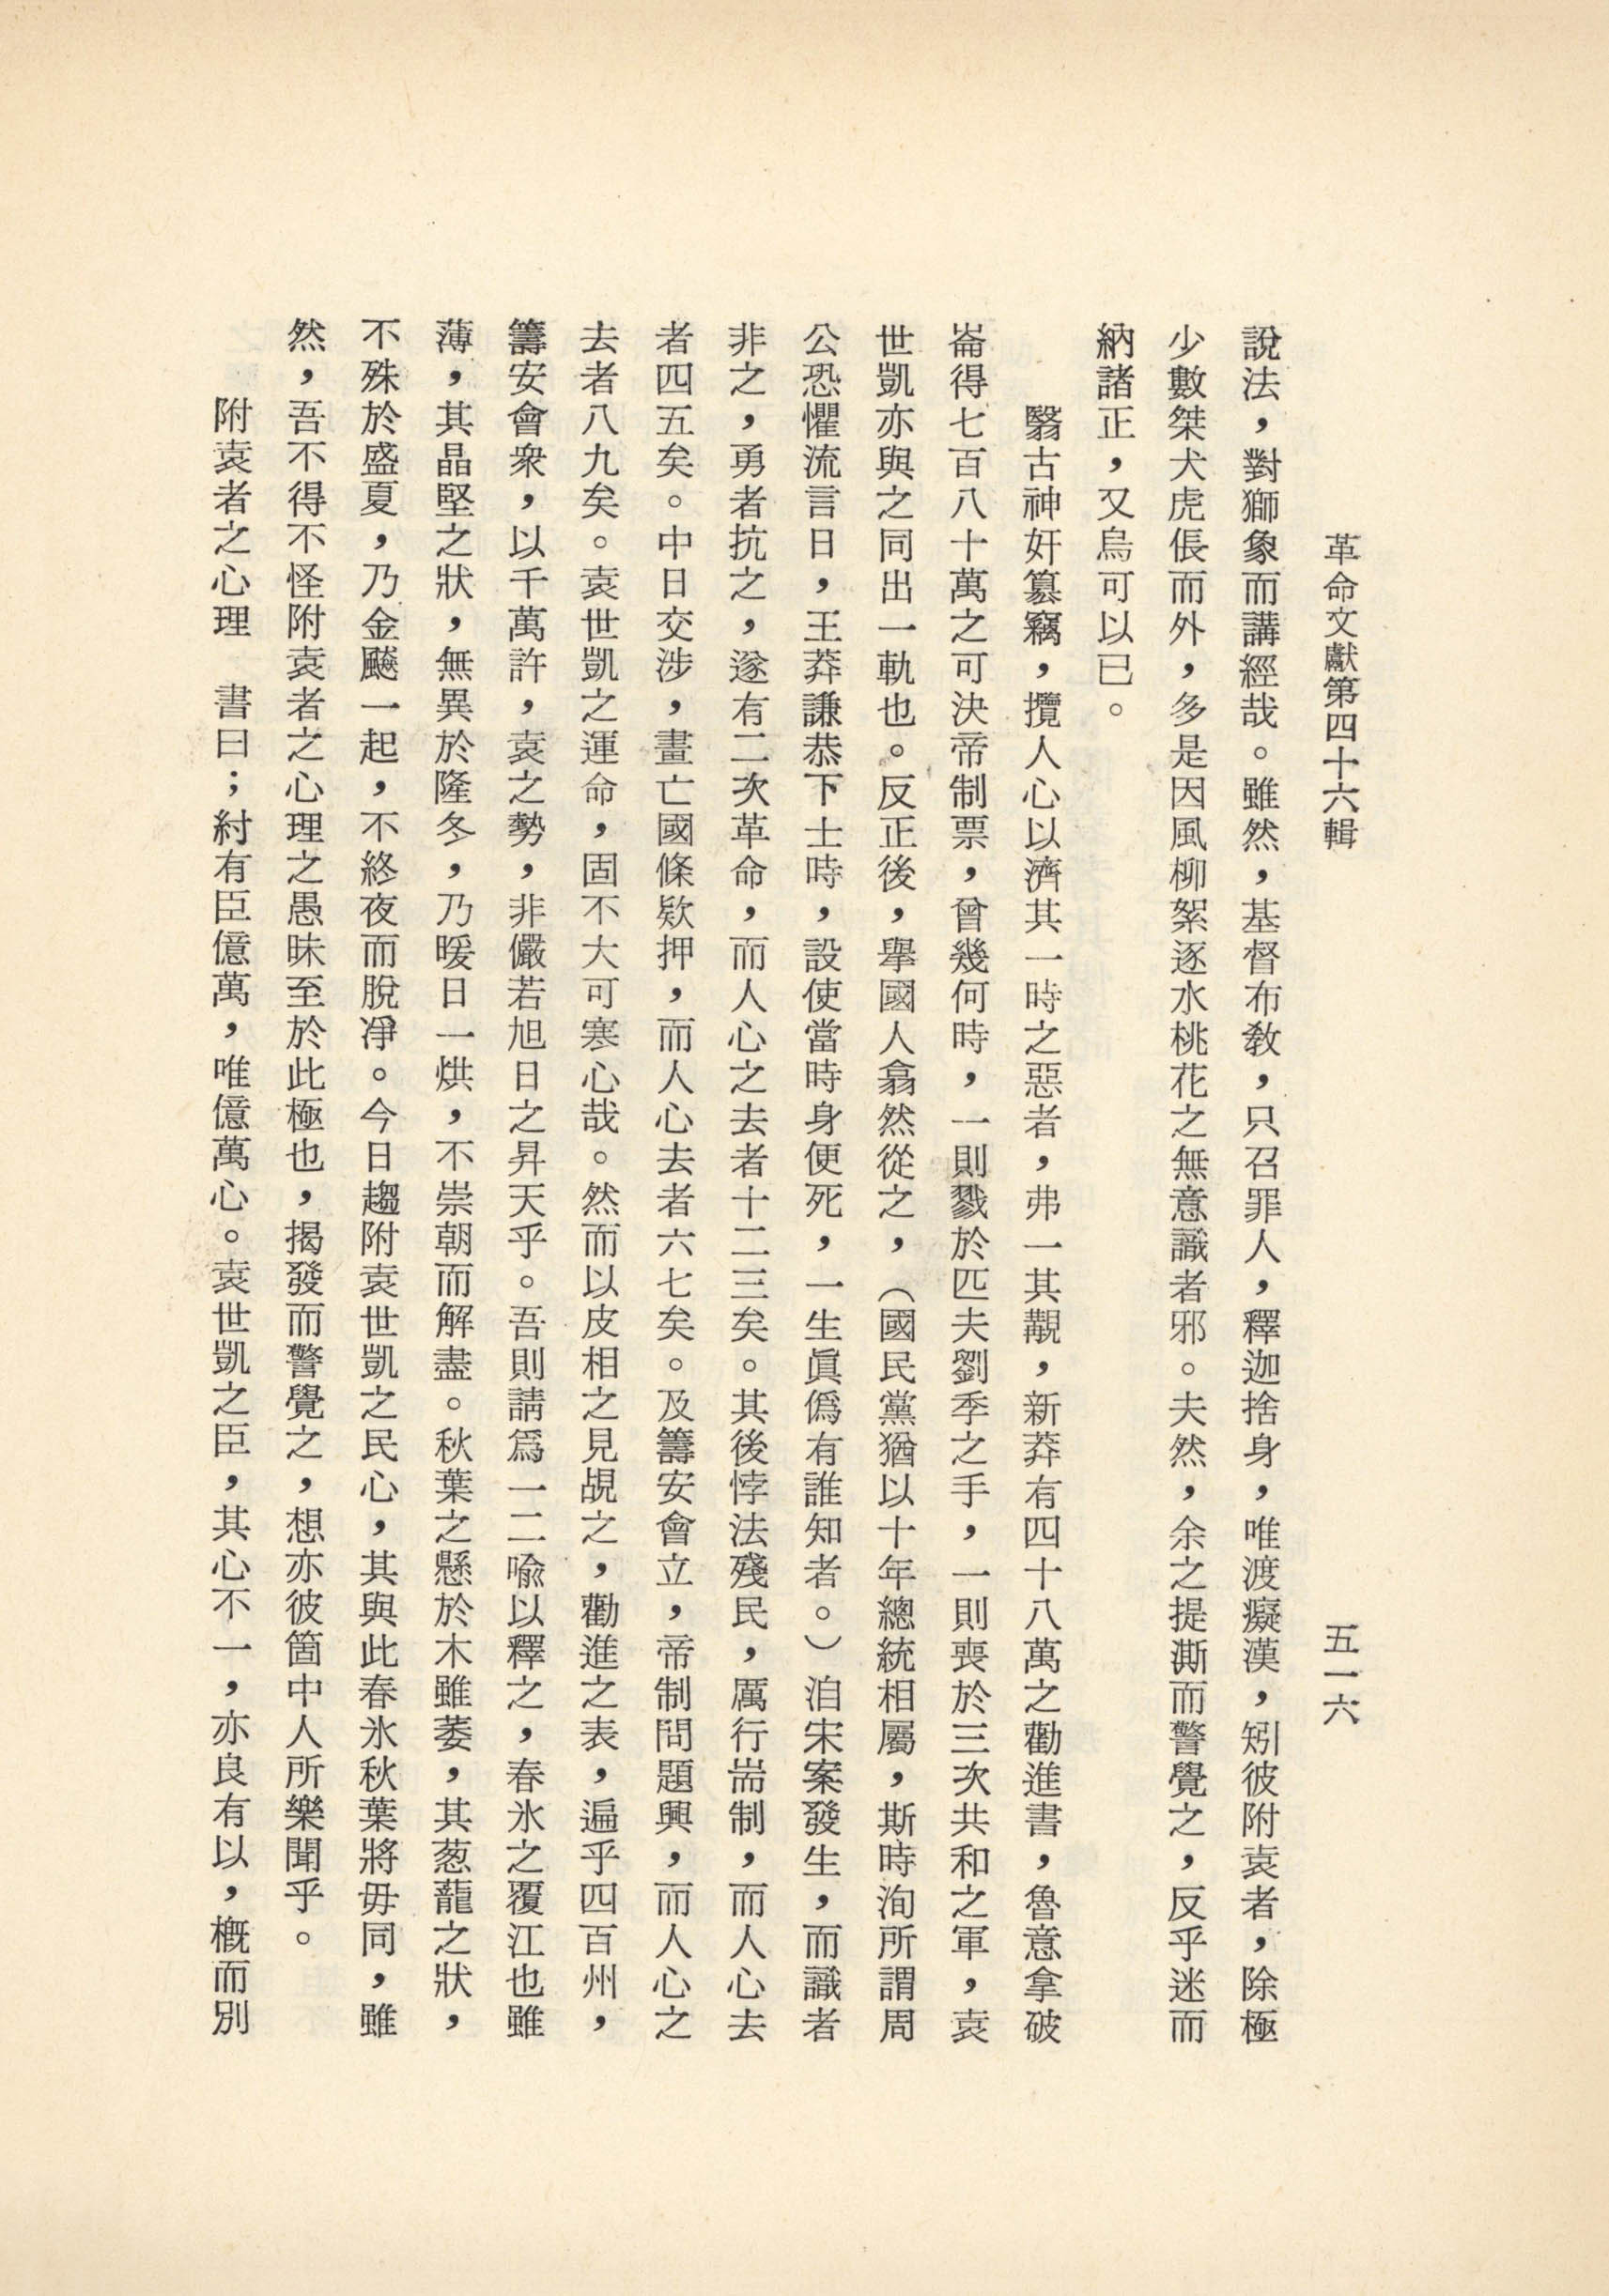 革命文獻第四十六輯
五一六
說法，對獅象而講經哉。雖然，基督布教，只召罪人，釋迦捨身，唯渡癡漢，矧彼附袁者，除極
少數桀犬虎倀而外，多是因風柳絮逐水桃花之無意識者邪。夫然，余之提澌而警覺之，反乎迷而
納諸正，又烏可以已。
翳古神奸篡竊，攬人心以濟其一時之惡者，弗一其覯，新莽有四十八萬之勸進書，魯意拿破
崙得七百八十萬之可決帝制票，曾幾何時，一則戮於匹夫劉季之手，一則喪於三次共和之軍，袁
世凱亦與之同出一軌也。反正後，舉國人翕然從之，（國民黨猶以十年總統相屬，斯時洵所謂周
公恐懼流言日，王莽謙恭下士時，設使當時身便死，一生眞僞有誰知者。）洎宋案發生，而識者
非之，勇者抗之，遂有二次革命，而人心之去者十二三矣。其後悖法殘民，厲行耑制，而人心去
者四五矣。中日交涉，畫亡國條欵押，而人心去者六七矣。及籌安會立，帝制問題興，而人心之
去者八九矣。袁世凱之運命，固不大可寒心哉。然而以皮相之見覘之，勸進之表，遍乎四百州，
籌安會衆，以千萬許，袁之勢，非儼若旭日之昇天乎。吾則請爲一二喩以釋之，春氷之覆江也雖
薄，其晶堅之狀，無異於隆冬，乃暖日一烘，不崇朝而解盡。秋葉之懸於木雖萎，其葱蘢之狀，
不殊於盛夏，乃金飈一起，不終夜而脫凈。今日趨附袁世凱之民心，其與此春氷秋葉將毋同，雖
然，吾不得不怪附袁者之心理之愚昧至於此極也，揭發而警覺之，想亦彼箇中人所樂聞乎。
附袁者之心理　書曰；紂有臣億萬，唯億萬心。袁世凱之臣，其心不一，亦良有以，槪而別